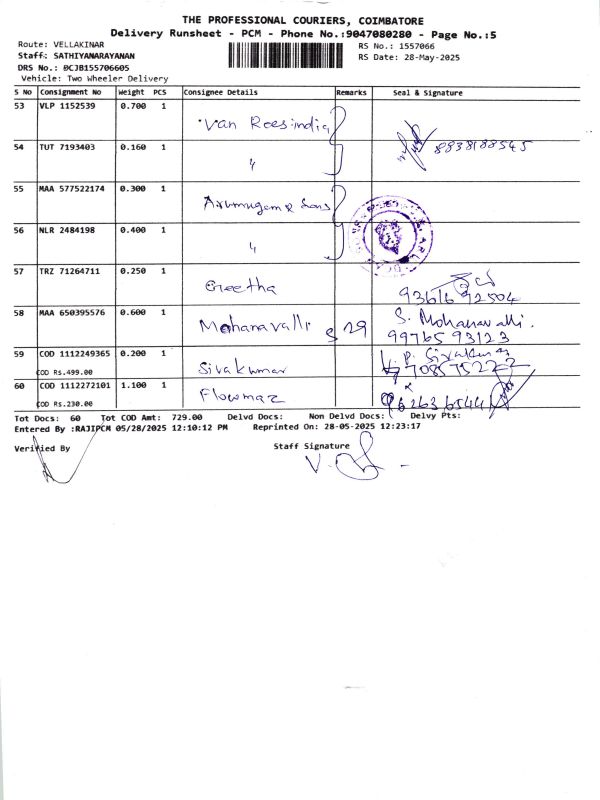 THE PROFESSIONAL COURIERS, COIMBATORE
Delivery Runsheet - PCM - Phone No.:9047080280 - Page No.:5
Route: VELLAKINAR
RS No.: 1557066
Staff: SATHIYANARAYANAN
RS Date: 28-May-2025
DRS No.: DCJB155706605
Vehicle: Two Wheeler Delivery
S No Consignment No Weight PCS Consignee Details Remarks Seal & Signature
53 VLP 1152539 0.700 1 Van Rees india
54 TUT 7193403 0.160 1 " 8838188545
55 MAA 577522174 0.300 1 Arumugam & Sons
56 NLR 2484198 0.400 1 "
57 TRZ 71264711 0.250 1 Geetha 93616 92504
58 MAA 650395576 0.600 1 Mohanavalli S 29 S. Mohanavalli.
99765 93123
59 COD 1112249365 0.200 1 Sivakumar P. Sivakumar
COD Rs.499.00
60 COD 1112272101 1.100 1 Flowmaz
COD Rs.230.00
Tot Docs: 60 Tot COD Amt: 729.00 Delvd Docs: Non Delvd Docs: Delvy Pts:
Entered By :RAJIPCM 05/28/2025 12:10:12 PM Reprinted On: 28-05-2025 12:23:17
Verified By
Staff Signature